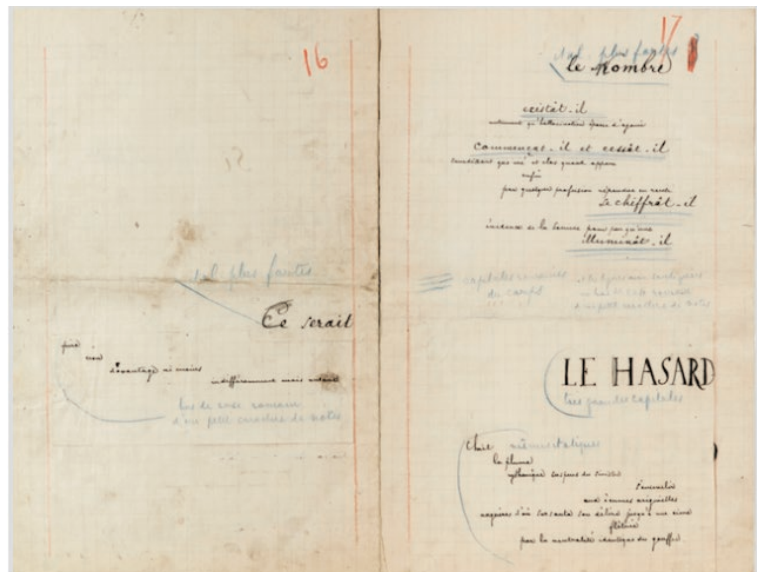 16
ital plus fortes
Ce serait
pire
non
davantage ni moins
indifféremment mais autant
bas de casse romain
d'un petit caractère de notes
17
ital. plus fortes
le Nombre
existât-il
autrement qu'hallucination éparse d'agonie
commençât-il et cessât-il
sourdant que nié et clos quand apparu
enfin
par quelque profusion répandue en rareté
se chiffrât-il
évidence de la somme pour peu qu'une
illuminât-il
capitales romaines
du corps
bas de casse romain
d'un petit caractère de notes
LE HASARD
très grandes capitales
Choit mêmes italiques
la plume
rythmique suspens du sinistre
s'ensevelir
aux écumes originelles
naguères d'où sursauta son délire jusqu'à une cime
flétrie
par la neutralité identique du gouffre